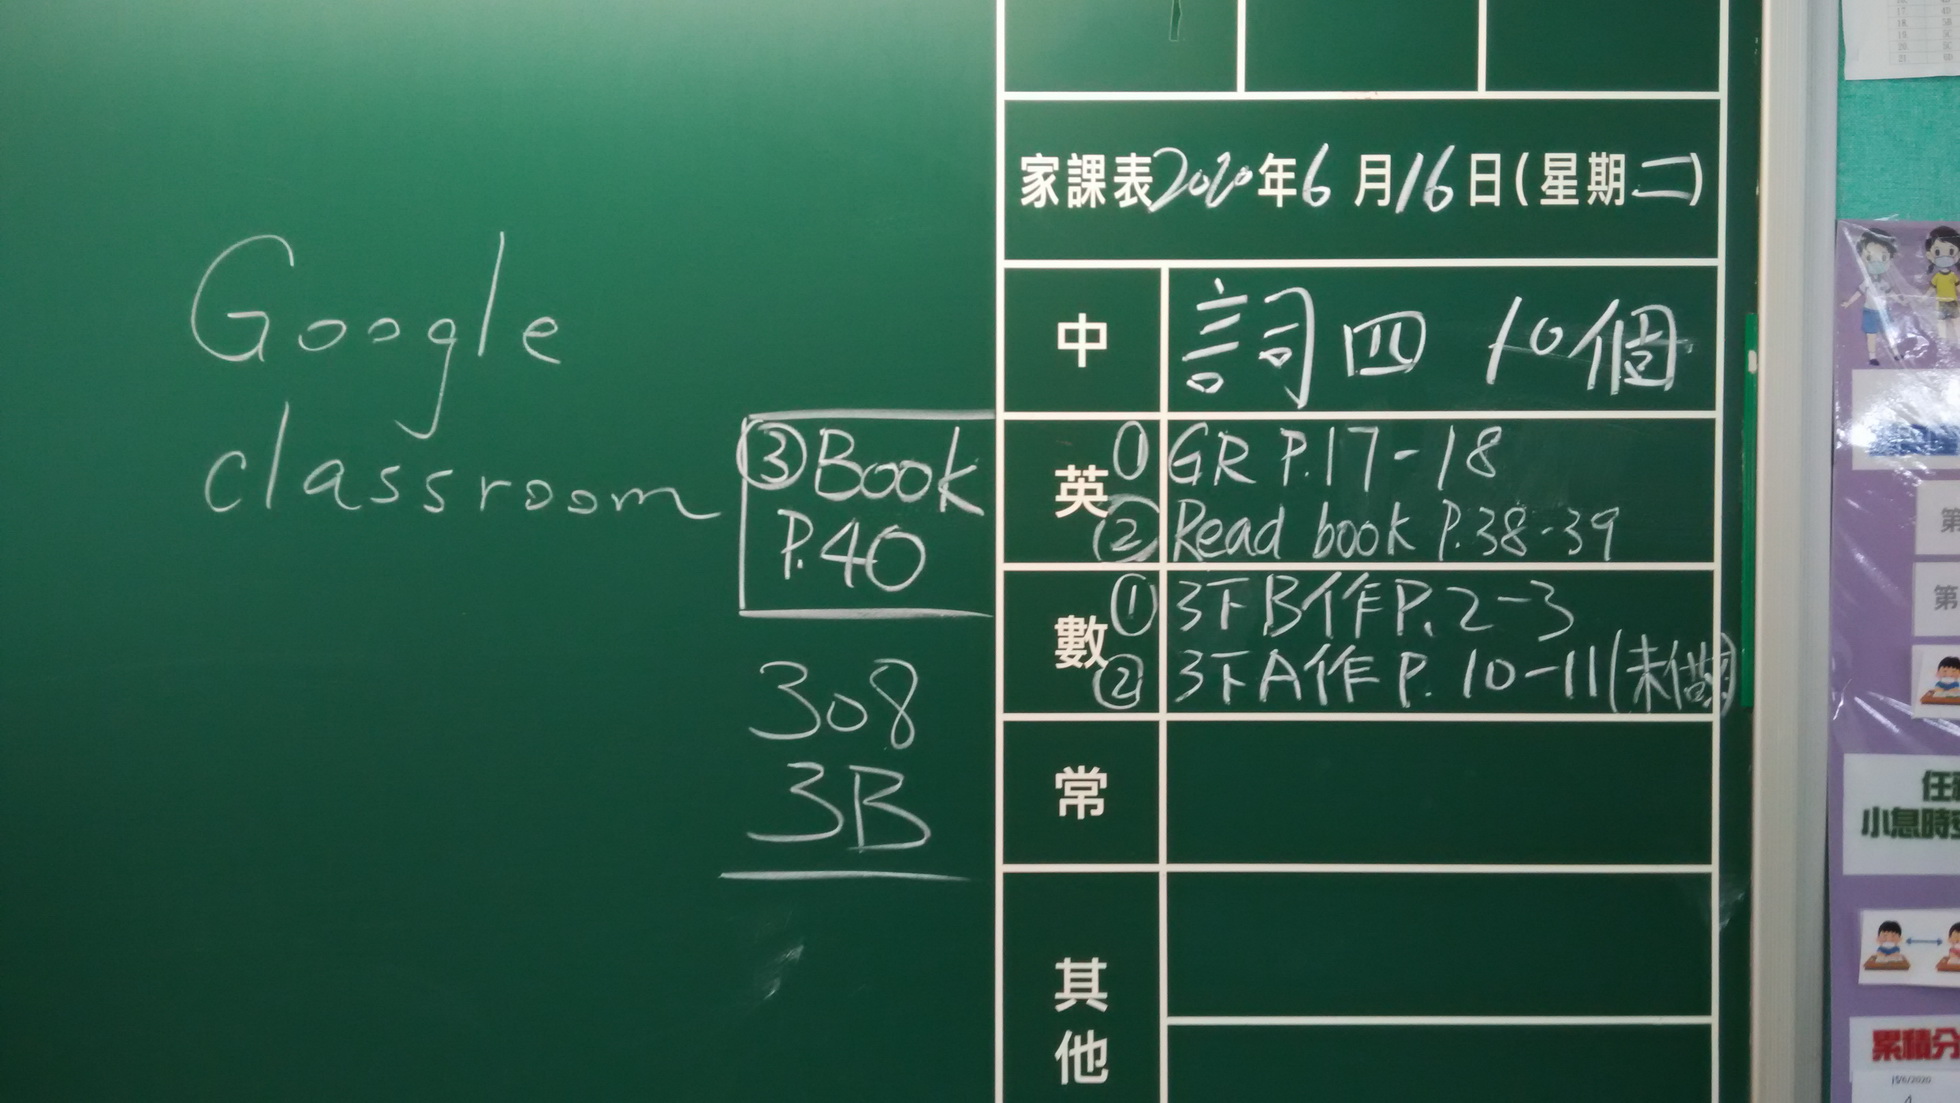 Google
classroom
③Book
P.40
308
3B
家課表2020年6月16日(星期二)
中
詞四 10個
英
①GR P.17-18
②Read book P.38-39
數
①3下B作P.2-3
②3下A作P.10-11(未做)
常
其他
第
第
小息時
累積分
15/6/2020